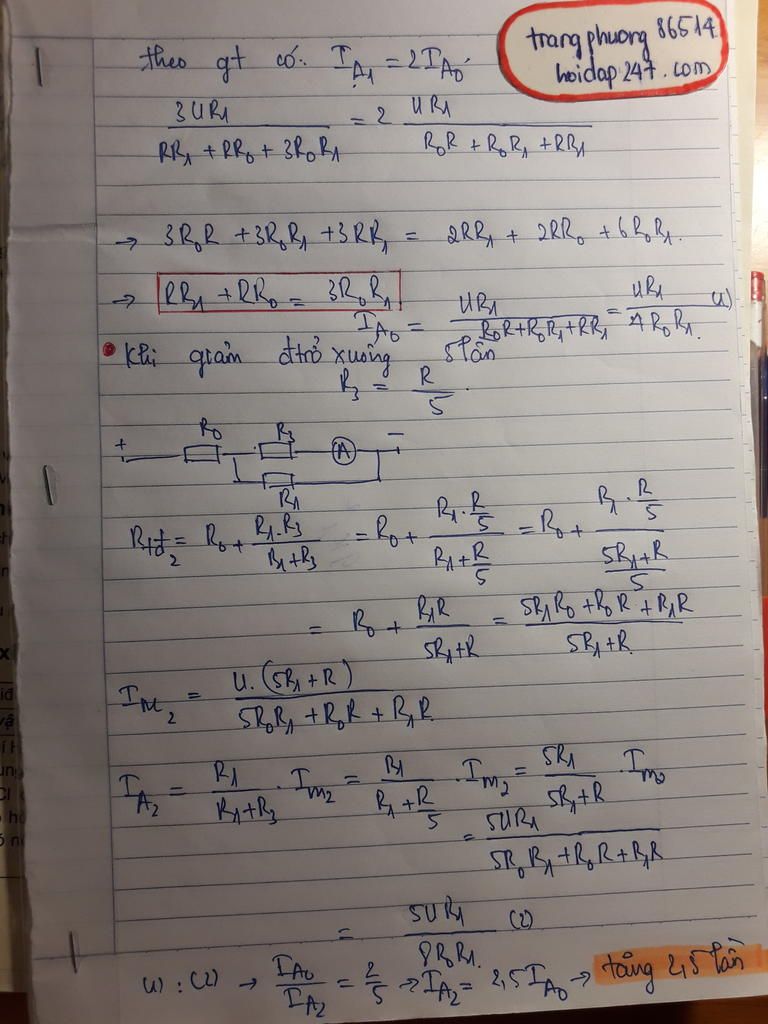 trangphuong 86514
hoidap 247.com
theo gt có: I_A1 = 2I_A0.
3UR1 / (RR1 + RR0 + 3R0R1) = 2 UR1 / (R0R + R0R1 + RR1)
→ 3R0R + 3R0R1 + 3RR1 = 2RR1 + 2RR0 + 6R0R1.
→ RR1 + RR0 = 3R0R1
I_A0 = UR1 / (R0R + R0R1 + RR1) = UR1 / 4R0R1. (1)
• Khi giảm đtrở xuống 5 lần
R3 = R/5.
+ R0 R3 A −
R1
Rtđ2 = R0 + R1.R3 / (R1 + R3) = R0 + (R1.R/5) / (R1 + R/5) = R0 + (R1.R/5) / ((5R1 + R)/5)
= R0 + R1R / (5R1 + R) = (5R1R0 + R0R + R1R) / (5R1 + R)
I_M2 = U.(5R1 + R) / (5R0R1 + R0R + R1R)
I_A2 = R1 / (R1 + R3) . I_m2 = R1 / (R1 + R/5) . I_m2 = 5R1 / (5R1 + R) . I_m2
= 5UR1 / (5R0R1 + R0R + R1R)
= 5UR1 / 8R0R1. (2)
(1) : (2) → I_A0 / I_A2 = 2/5 → I_A2 = 2,5I_A0 → tăng 2,5 lần